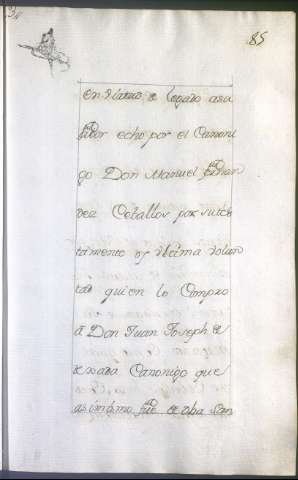 85
en virtud de legado a su
favor echo por el Canoni
go Don Manuel Fernan
dez Ceballos por su tes
tamento y ultima volun
tad quien lo Compro
á Don Juan Joseph de
Canonigo que
asimismo fue de dha San